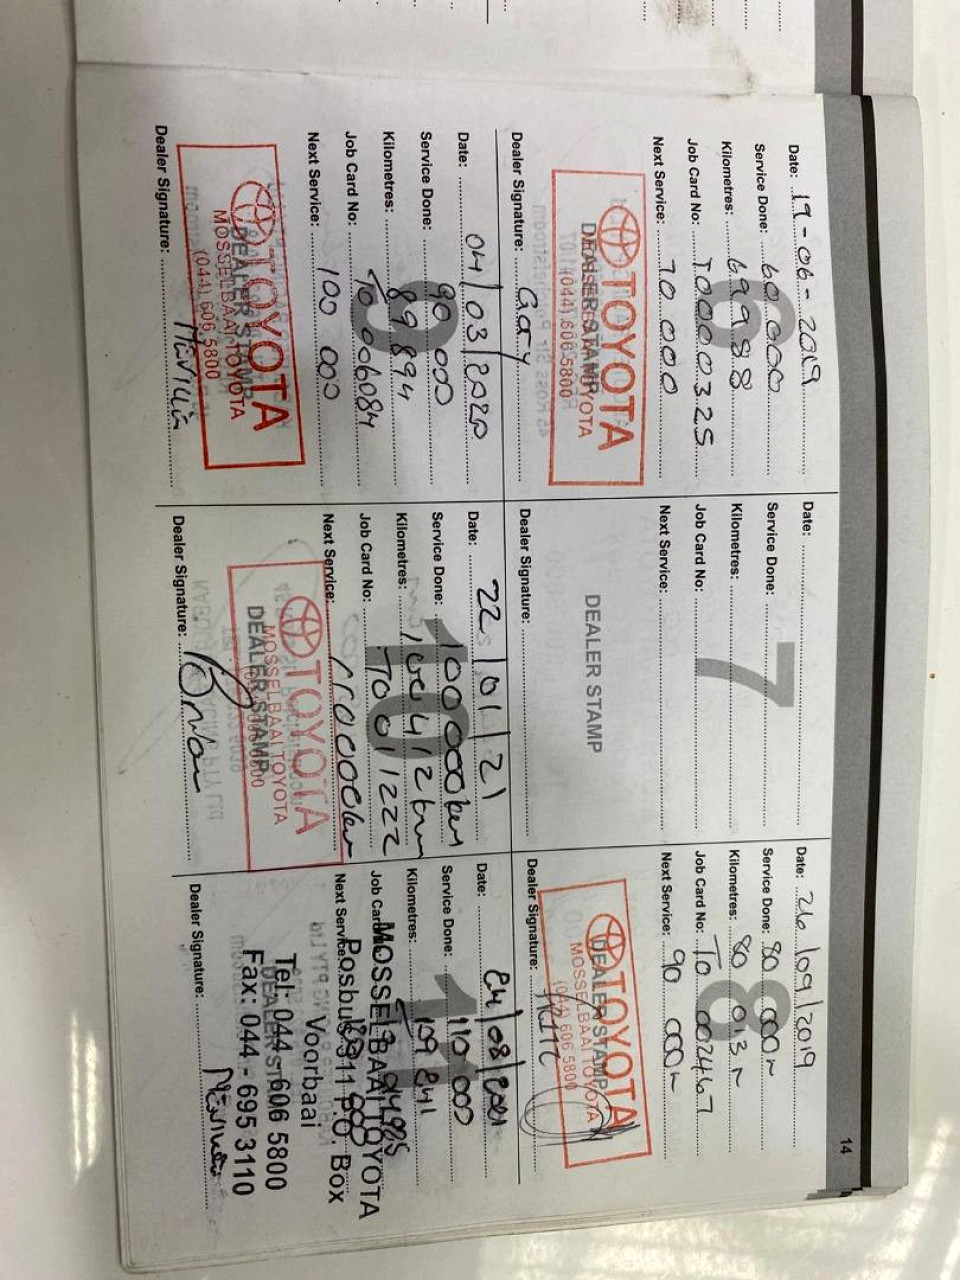 14
Date: 19-06-2019
Service Done: 60 000
Kilometres: 69988
Job Card No: T0000325
Next Service: 70 000
6
TOYOTA
DEALER STAMP
(044) 606 5800
Dealer Signature: Gary
Date:
Service Done:
Kilometres:
Job Card No:
Next Service:
7
DEALER STAMP
Dealer Signature:
Date: 26/09/2019
Service Done: 80 000
Kilometres: 80 013
Job Card No: T0002467
Next Service: 90 000
8
TOYOTA
DEALER STAMP
MOSSELBAAI TOYOTA
(044) 606 5800
Dealer Signature:
Date: 04/03/2020
Service Done: 90 000
Kilometres: 89894
Job Card No: T0006084
Next Service: 100 000
9
TOYOTA
DEALER STAMP
MOSSELBAAI TOYOTA
(044) 606 5800
Dealer Signature:
Date: 22/01/21
Service Done: 100000km
Kilometres: 100412km
Job Card No: T0011222
Next Service: 110000km
10
TOYOTA
MOSSELBAAI TOYOTA
DEALER STAMP
Dealer Signature:
Date: 24/08/2021
Service Done: 110 000
Kilometres: 109841
Job Card
Next Service
11
MOSSELBAAI TOYOTA
Posbus 311 P.O. Box
Voorbaai
Tel: 044 - 606 5800
DEALER STAMP
Fax: 044 - 695 3110
Dealer Signature: